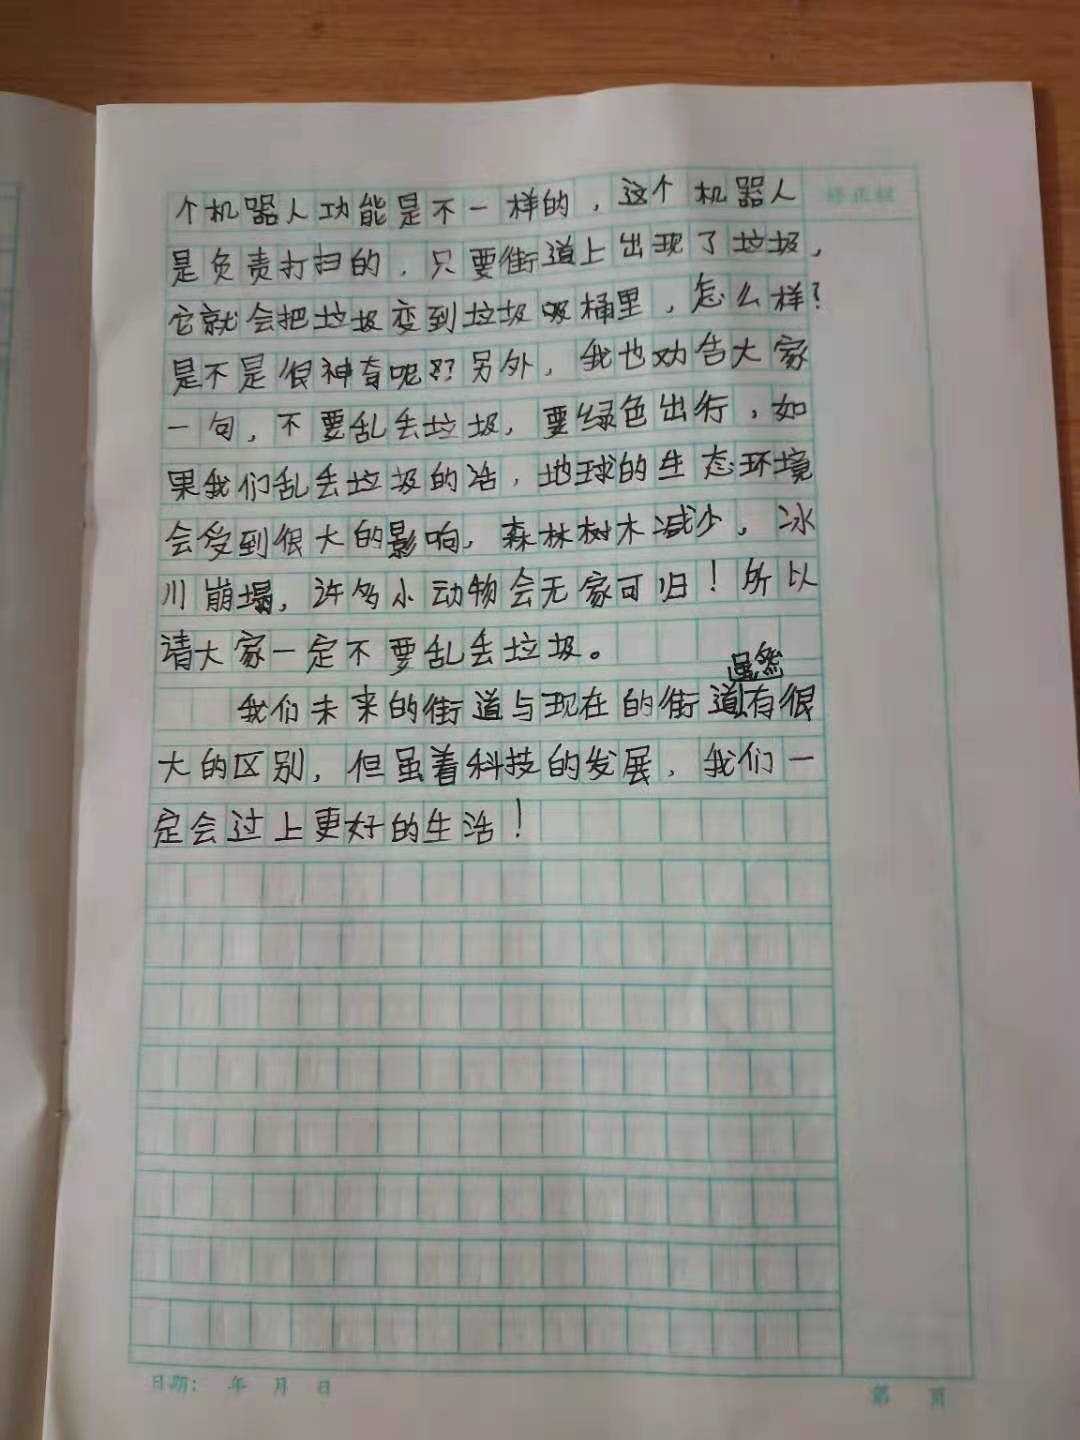 个机器人功能是不一样的，这个机器人
是负责打扫的，只要街道上出现了垃圾，
它就会把垃圾变到垃圾圾桶里，怎么样？
是不是很神奇呢？？另外，我也劝告大家
一句，不要乱丢垃圾，要绿色出行，如
果我们乱丢垃圾的活，地球的生态环境
会受到很大的影响，森林树木减少，冰
川崩塌，许多小动物会无家可归！所以
请大家一定不要乱丢垃圾。
虽然
我们未来的街道与现在的街道有很
大的区别，但虽着科技的发展，我们一
定会过上更好的生活！
日期： 年 月 日
第 页